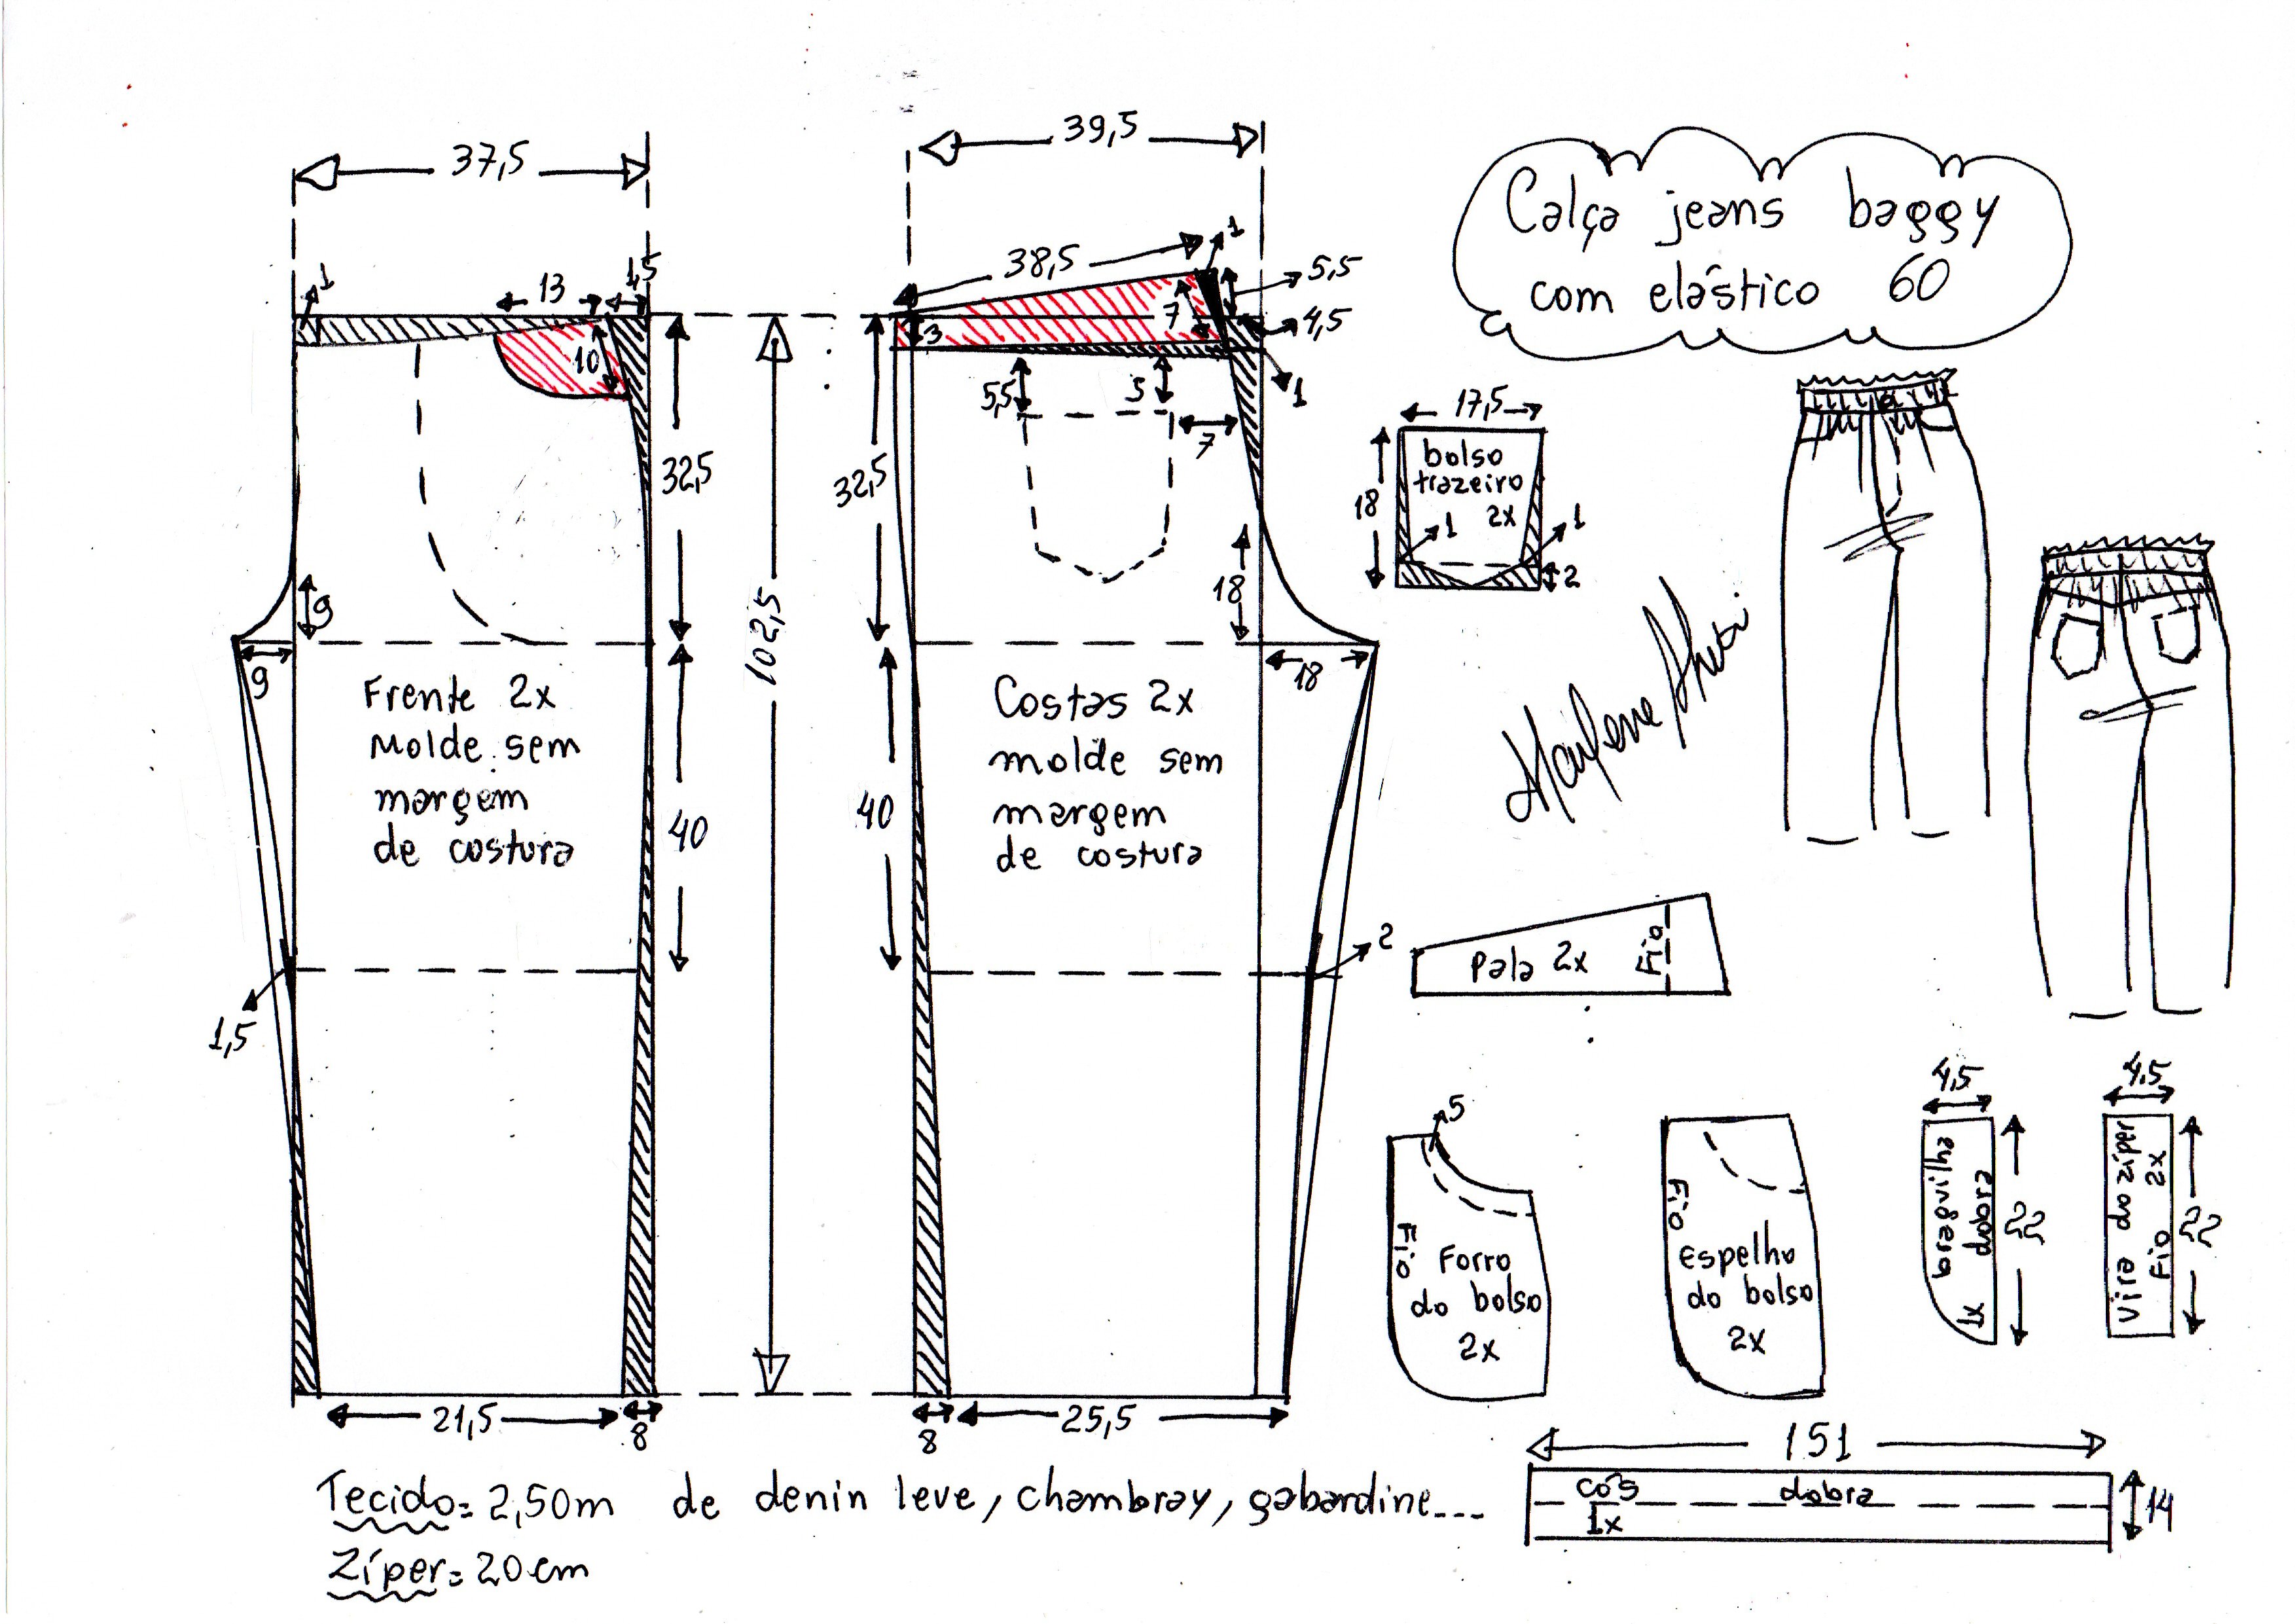 37,5
1
13
1,5
10
32,5
9
9
40
1,5
21,5
8
Frente 2x
Molde sem
margem
de costura
102,5
39,5
38,5
1
5,5
4,5
7
3
1
5,5
5
7
32,5
18
18
40
2
8
25,5
Costas 2x
molde sem
margem
de costura
Calça jeans baggy
com elástico 60
17,5
18
bolso
trazeiro
2x
1
1
2
Marlene
Pala 2x
Fio
5
Fio
Forro
do bolso
2x
Fio
Espelho
do bolso
2x
4,5
braguilha
1x dobra
22
4,5
Vira do zíper
Fio 2x
22
151
cós
1x
dobra
14
Tecido= 2,50m de denin leve, chambray, gabardine...
Zíper= 20cm